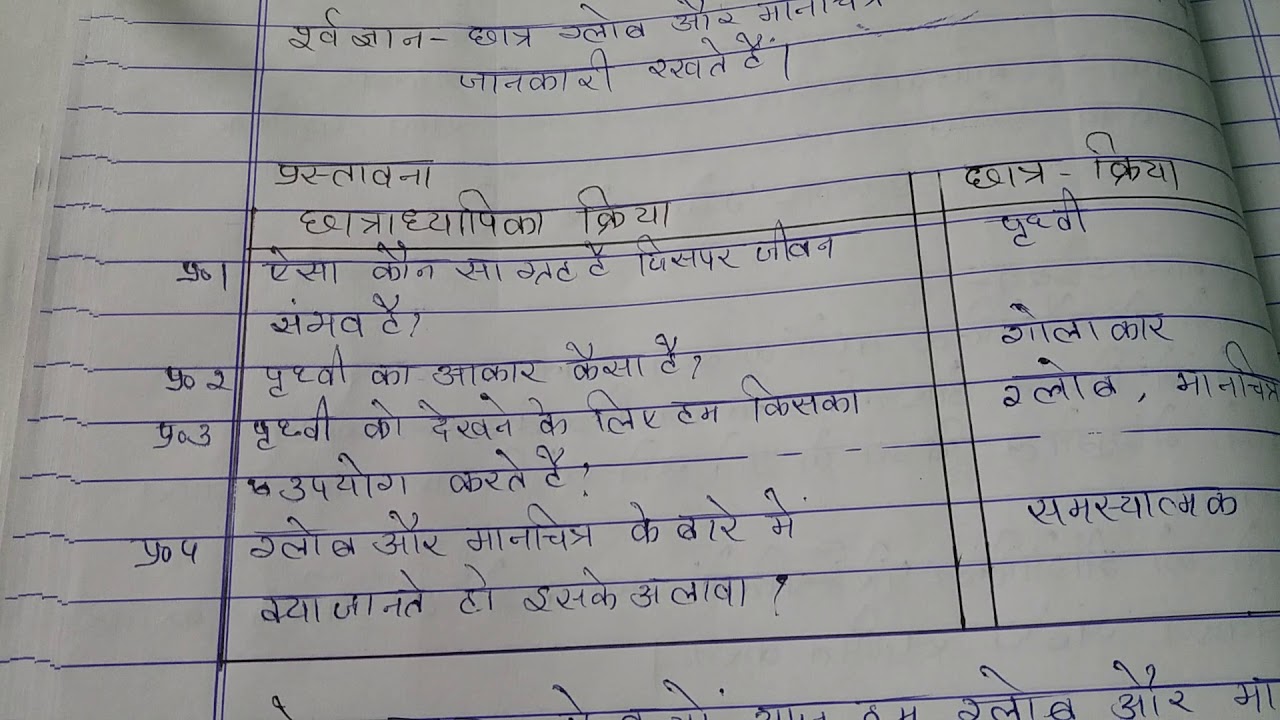 र्व ज्ञान - छात्र ग्लोब और मानचित्र
जानकारी रखते हैं।
प्रस्तावना
छात्राध्यापिका क्रिया
छात्र - क्रिया
प्र०1 ऐसा कौन सा ग्रह है जिसपर जीवन
पृथ्वी
संभव है?
गोलाकार
प्र० २ पृथ्वी का आकार कैसा है?
प्र०3 पृथ्वी को देखने के लिए हम किसका
ग्लोब, मानचित्र
उपयोग करते है?
समस्यात्मक
प्र०५ ग्लोब और मानचित्र के बारे में
क्या जानते हो इसके अलावा?
हम ग्लोब और मा